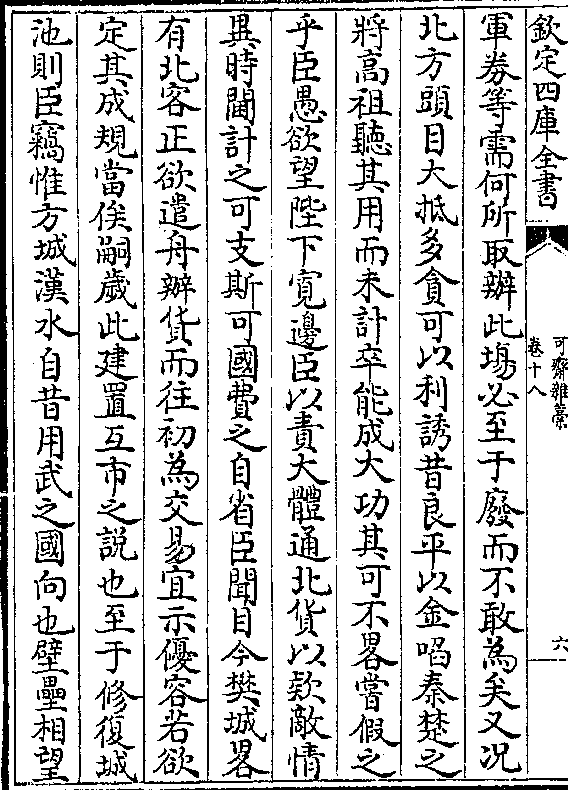 欽定四庫全書
可齋雜藁
卷十八
六
軍券等需何所取辦此場必至于廢而不敢為矣又况
北方頭目大抵多貪可以利誘昔良平以金啗秦楚之
將高祖聽其用而未計卒能成大功其可不畧嘗假之
乎臣愚欲望陛下寛邊臣以責大體通北貨以欵敵情
異時閫計之可支斯可國費之自省臣聞目今樊城畧
有北客正欲遣舟辦貨而往初為交易宜示優容若欲
定其成規當俟嗣歲此建置互市之説也至于修復城
池則臣竊惟方城漢水自昔用武之國向也壁壘相望